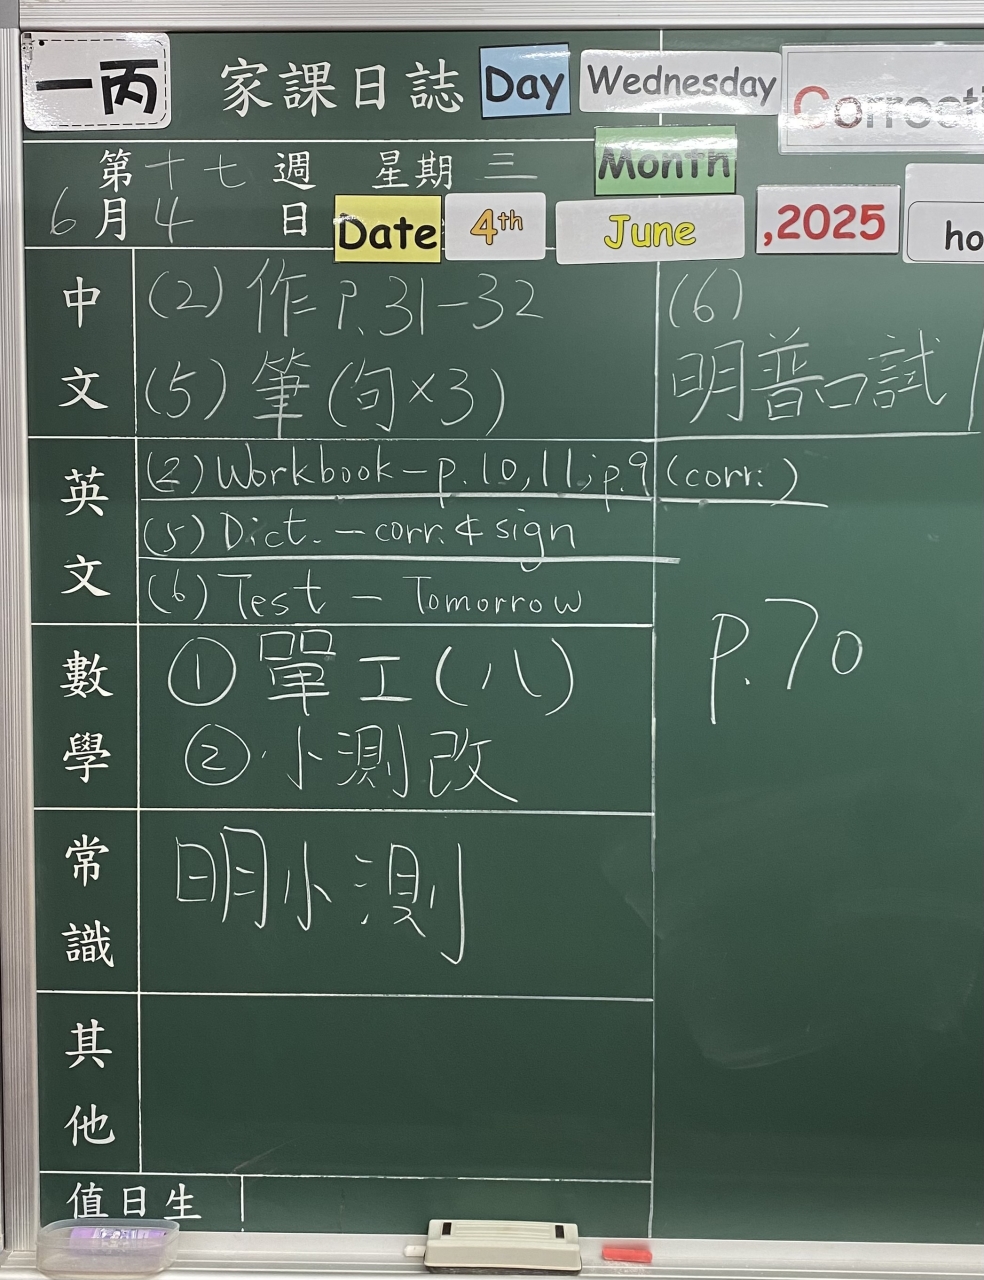 一丙 家課日誌 Day Wednesday Correcti
第十七週 星期三 Month
6月4日 Date 4th June ,2025 ho
中文 (2) 作 P.31-32 (6)
(5) 筆(句×3) 明普口試
英文 (2) Workbook - p.10, 11; p.9 (corr.)
(5) Dict. - corr. & sign
(6) Test - Tomorrow
數學 ① 單工(八) p.70
② 小測改
常識 明小測
其他
值日生